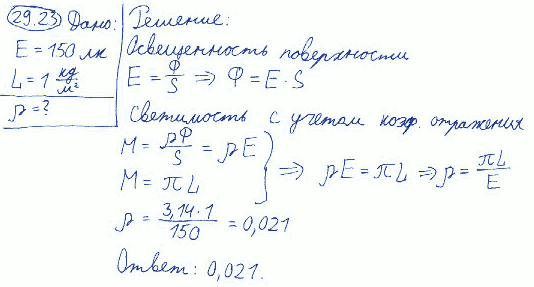 29.23 Дано:
E = 150 лк
L = 1 кд/м²
ρ = ?
Решение:
Освещенность поверхности
E = Φ/S ⇒ Φ = E · S
Светимость с учетом коэф. отражения
M = ρΦ/S = ρE
M = πL
} ⇒ ρE = πL ⇒ ρ = πL/E
ρ = 3,14 · 1/150 = 0,021
Ответ: 0,021.